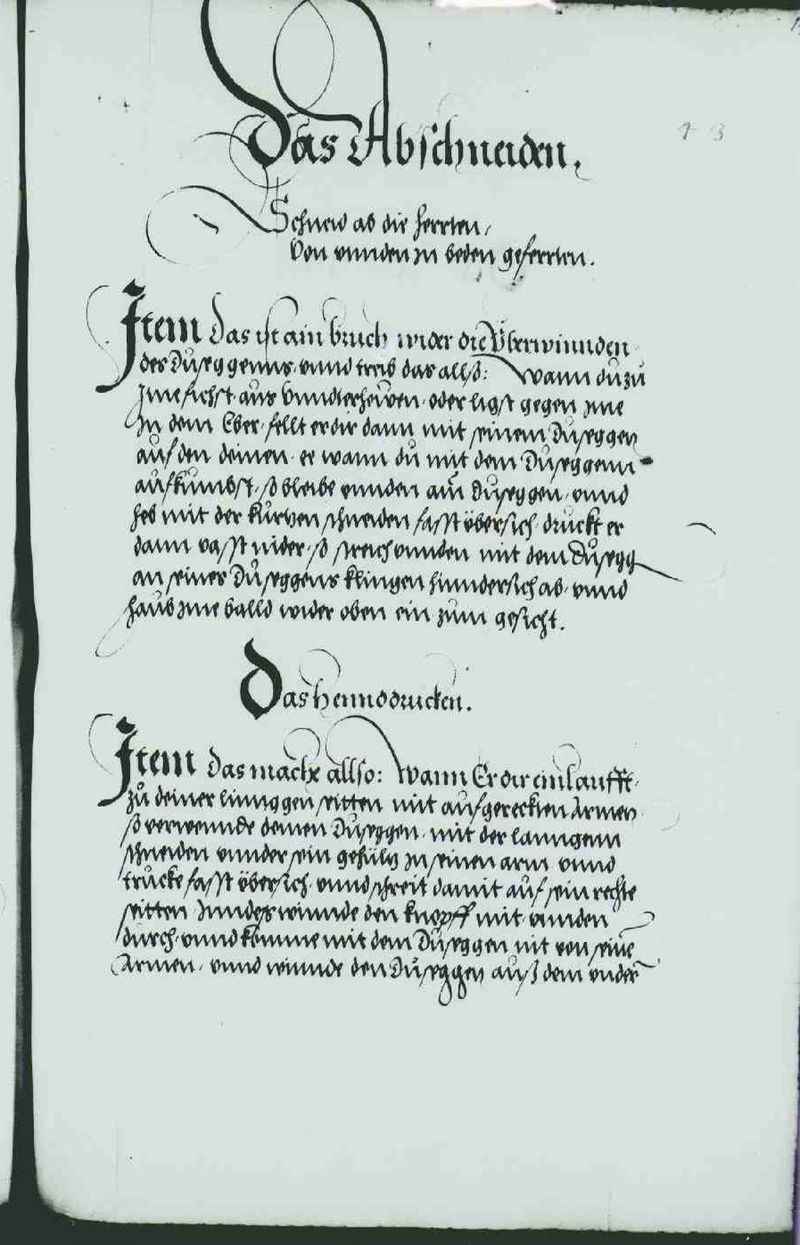 13
Das Abschneiden.
Schneid ab die herrten,
Von unnden in beden geferrten.
Item das ist ain bruch wider die Überwinnden
des Dusseggenns. unnd treib das allso: Wann du zu
Ime fichst aus Unnderhewen. oder ligst gegen ime
In dem Eber. fellt er dir dann mit seinem Dusseggen
auf den deinen. ee wann du mit dem Dusseggenn
aufkumbst. so bleibe unnden am Dusseggen. unnd
heb mit der kurtzen schneiden fasst übersich. druckt er
dann vasst nider. so streich unnden mit dem Dusegg
an seines Dusseggens klingen hindersich ab. unnd
haub ime balld wider oben ein zum gesicht.
Das Hennddrucken.
Item das mache allso: Wann Er dir einlaufft.
zu deiner linnggen seitten mit aufgereckten Armen.
so verwennde deinen Dusseggen. mit der lanngenn
schneiden unnder sein gehültz in seinen arm unnd
trucke fasst übersich. unnd schreit damit auf sein rechte
seitten. Inndes winnde den knopff mit unnden
durch. unnd komme mit dem Dusseggen nit von seinē
Armen. unnd winnde den Dusseggen auß dem under